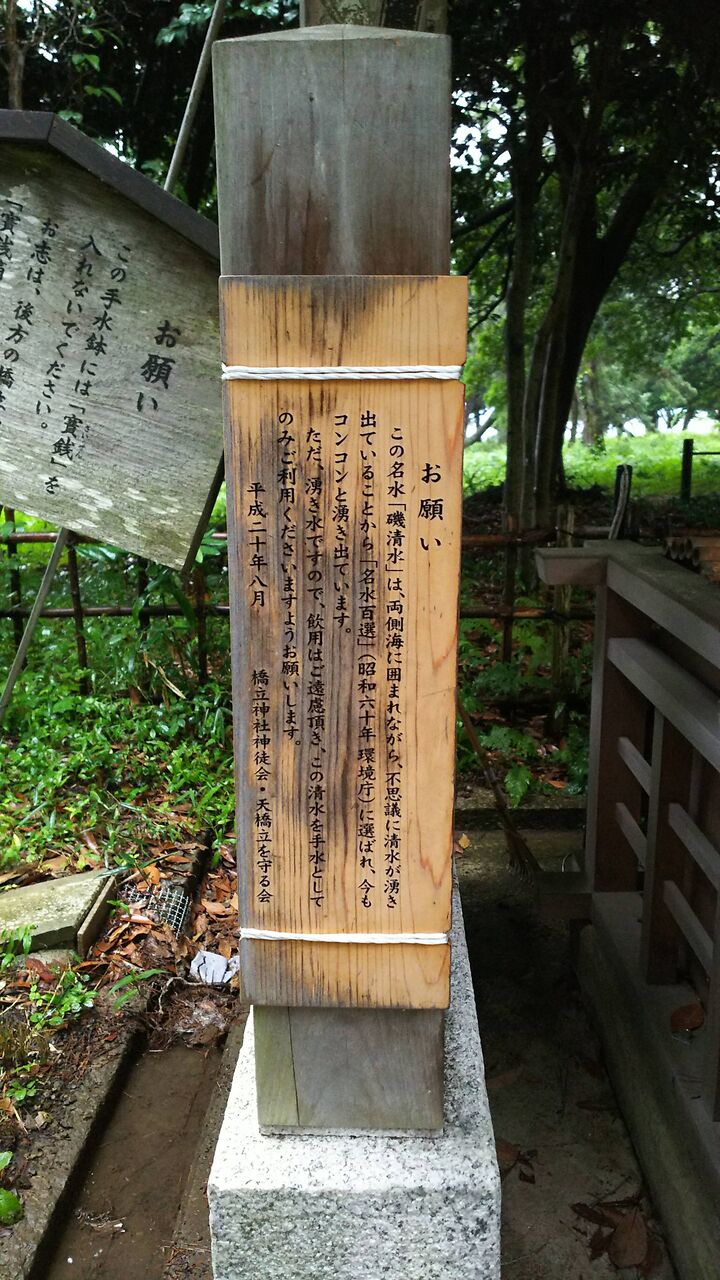 お願い
この名水「磯清水」は、両側海に囲まれながら、不思議に清水が湧き
出ていることから「名水百選」（昭和六十年 環境庁）に選ばれ、今も
コンコンと湧き出ています。
ただ、湧き水ですので、飲用はご遠慮頂き、この清水を手水として
のみご利用くださいますようお願いします。
平成二十年八月　橋立神社神徒会・天橋立を守る会
お願い
この手水鉢には「賽銭」を
さいせん
入れないでください。
お志は、後方の橋
「賽銭